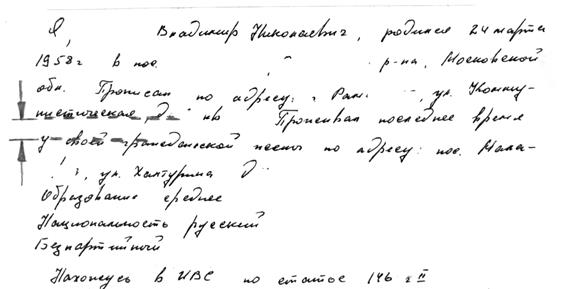 Я, Владимир Николаевич, родился 24 марта
1958 г в пос. р-на, Московской
обл. Прописан по адресу: г Рам ул. Комму-
нистическая, д кв Проживал последнее время
у своей гражданской жены по адресу: пос. Мала-
ул. Халтурина д
Образование среднее
Национальность русский
Безпартийный
Нахожусь в ИВС по статье 146 ч II